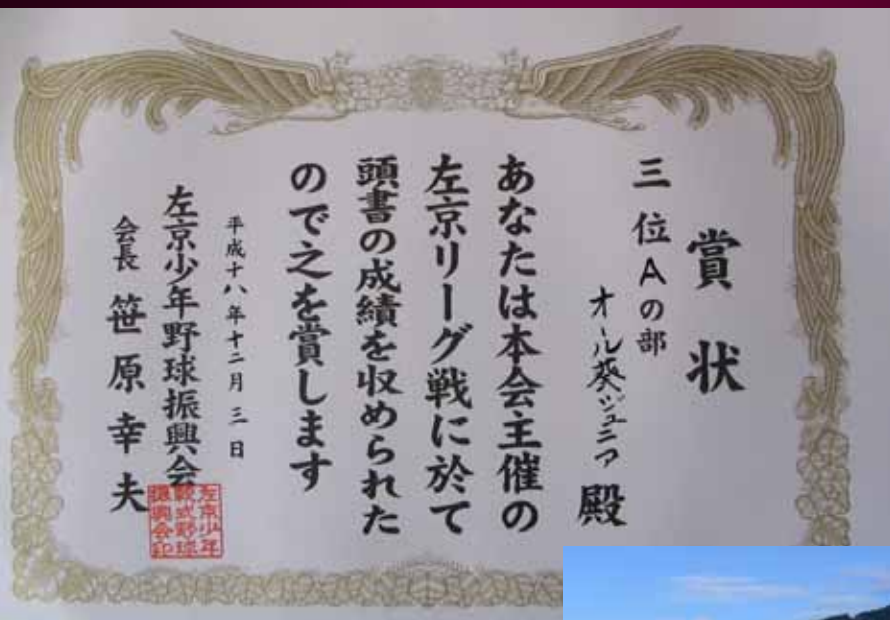 賞状
三位Aの部
オール葵ジュニア殿
あなたは本会主催の
左京リーグ戦に於て
頭書の成績を収められた
ので之を賞します
平成十八年十二月三日
左京少年野球振興会
会長 笹原幸夫
左京少年
軟式野球
振興会印